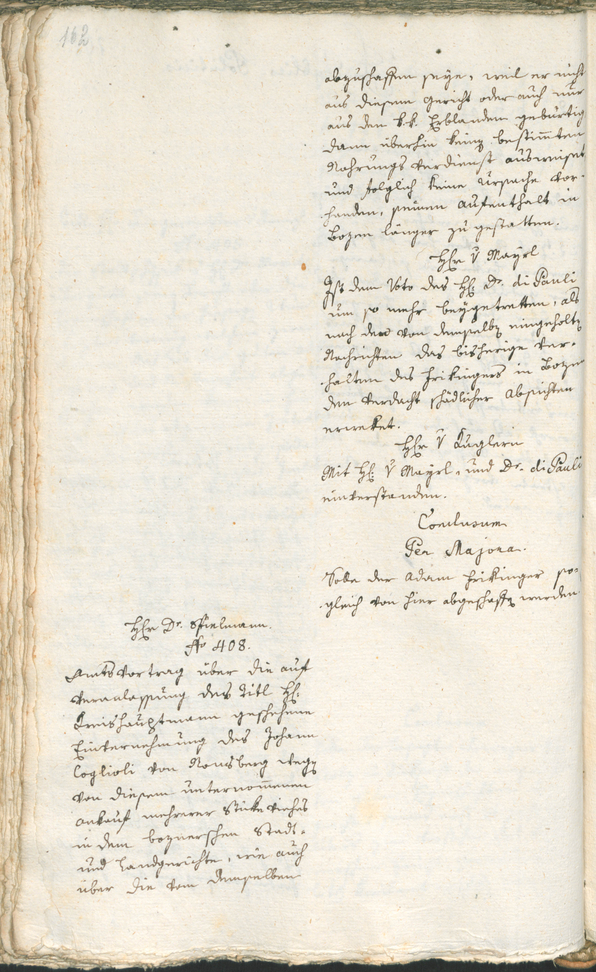 162
abzuschaffen seye, weil er nicht
aus diesem Gericht oder auch nur
aus den k.k. Erblanden gebürtig
dann überhin keinen bestimmten
Nahrungs Verdienst ausweiset
und folglich keine Ursache vor-
handen, seinen Aufenthalt in
Bozen länger zu gestatten.
Hr v Mayrl
Ist dem Voto des H. Dr. di Pauli
um so mehr beygetretten, als
nach den von demselben eingeholten
Nachrichten das bisherige Ver-
halten des Frikingers in Bozen
den Verdacht schädlicher Absichten
erweket.
Hr v Kuglern
Mit H. v Mayrl, und Dr. di Pauli
einverstanden.
Conclusum
Per Majora.
Solle der Adam Frikinger so-
gleich von hier abgeschaft werden
Hr Dr. Spielmann.
No 408.
Amts Vortrag über die auf
Veranlassung des Titl H.
Kreishauptmann geschehene
Einvernehmung des Johann
Coglioli von Nonsberg wegen
von diesem unternommenen
Ankauf mehrerer Stüke Viehes
in dem boznerschen Stadt-
und Landgerichte, wie auch
über die vom demselben